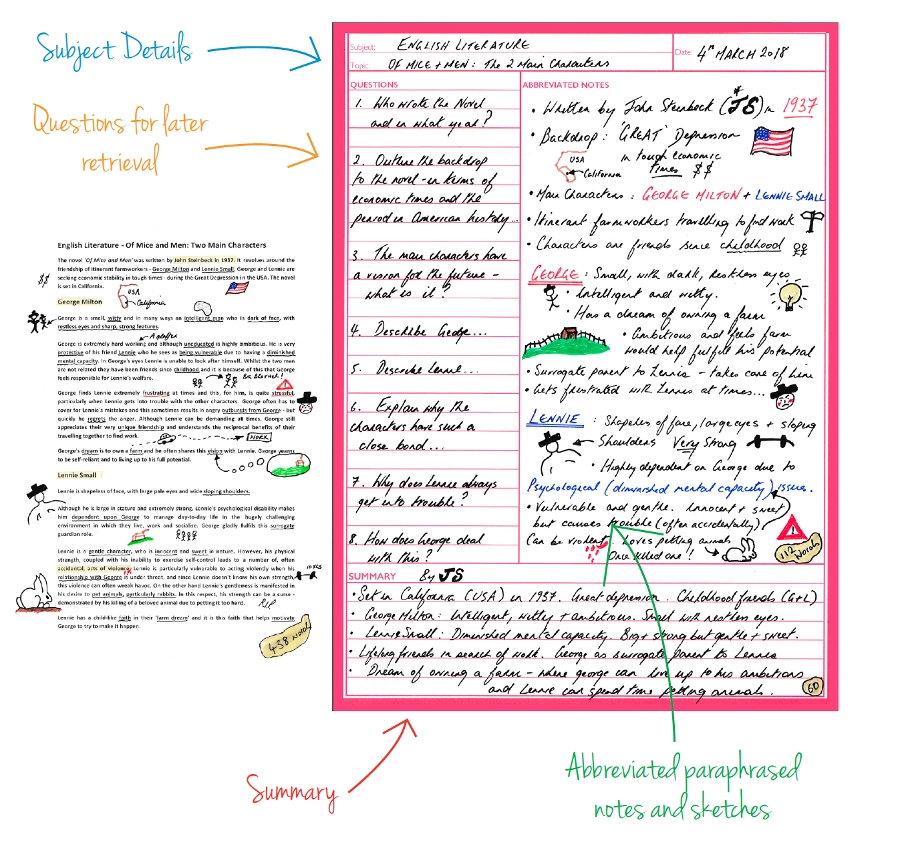 Subject Details
Questions for later
retrieval
English Literature - Of Mice and Men: Two Main Characters
The novel 'Of Mice and Men' was written by John Steinback in 1937. It revolves around the
friendship of itinerant farmworkers - George Milton and Lennie Small. George and Lennie are
seeking economic stability in tough times - during the Great Depression in the USA. The novel
is set in California.
$$
USA
California
George Milton
George is a small, witty and in many ways an intelligent man who is dark of face, with
restless eyes and sharp, strong features.
George is extremely hard working and although uneducated is highly ambitious. He is very
protective of his friend Lennie who he sees as being vulnerable due to having a diminished
mental capacity. In George's eyes Lennie is unable to look after himself. Whilst the two men
are not related they have been friends since childhood and it is because of this that George
feels responsible for Lennie's welfare.
George finds Lennie extremely frustrating at times and this, for him, is quite stressful,
particularly when Lennie gets into trouble with the other characters. George often has to
cover for Lennie's mistakes and this sometimes results in angry outbursts from George - but
quickly he regrets the anger. Although Lennie can be demanding at times. George still
appreciates their very unique friendship and understands the reciprocal benefits of their
travelling together to find work.
WORK
George's dream is to own a farm and he often shares this vision with Lennie. George yearns
to be self-reliant and to living up to his full potential.
Lennie Small
Lennie is shapeless of face, with large pale eyes and wide sloping shoulders.
Although he is large in stature and extremely strong, Lennie's psychological disability makes
him dependent upon George to manage day-to-day life in the hugely challenging
environment in which they live, work and socialise. George gladly fulfils this surrogate
guardian role.
Lennie is a gentle character, who is innocent and sweet in nature. However, his physical
strength, coupled with his inability to exercise self-control leads to a number of, often
accidental, acts of violence. Lennie is particularly vulnerable to acting violently when his
relationship with George in under threat, and since Lennie doesn't know his own strength,
this violence can often weak havoc. On the other hand Lennie's gentleness is manifested in
his desire to pet animals, particularly rabbits. In this respect, his strength can be a curse -
demonstrated by his killing of a beloved animal due to petting it too hard.
RIP
Lennie has a childlike faith in their 'farm dreams' and it is this faith that helps motivate
George to try to make it happen.
438 words
Subject: ENGLISH LITERATURE
Date: 4th MARCH 2018
Topic: OF MICE + MEN: The 2 Main Characters
QUESTIONS
1. Who wrote the Novel
and in what year?
2. Outline the backdrop
to the novel - in terms of
economic times and the
period in American history...
3. The main characters have
a vision for the future -
what is it?
4. Describe George...
5. Describe Lennie...
6. Explain why the
characters have such a
close bond...
7. Why does Lennie always
get into trouble?
8. How does George deal
with this?
ABBREVIATED NOTES
• Written by John Steinbeck (JS) in 1937
• Backdrop: 'GREAT' Depression
in tough economic
times $$
USA
California
• Main Characters: GEORGE MILTON + LENNIE SMALL
• Itinerant farmworkers travelling to find work
• Characters are friends since childhood
GEORGE: Small, with dark, restless eyes
• Intelligent and witty.
• Has a dream of owning a farm
• Ambitious and feels farm
would help fulfill his potential
• Surrogate parent to Lennie - takes care of him
• Gets frustrated with Lennie at times...
LENNIE: Shapeless of face, large eyes + sloping
Shoulders Very Strong
• Highly dependent on George due to
Psychological (diminished mental capacity) issues.
• Vulnerable and gentle. Innocent + sweet
but causes trouble (often accidentally)
Can be violent. Loves petting animals
Once killed one!
112 words
SUMMARY By JS
• Set in California (USA) in 1937. Great depression. Childhood friends (G+L)
• George Milton: Intelligent, witty + ambitious. Small with restless eyes.
• Lennie Small: Diminished mental capacity. Big + strong but gentle + sweet.
• Lifelong friends in search of work. George as surrogate parent to Lennie
• Dream of owning a farm - where george can live up to his ambitions
and Lennie can spend time petting animals.
60
Summary
Abbreviated paraphrased
notes and sketches